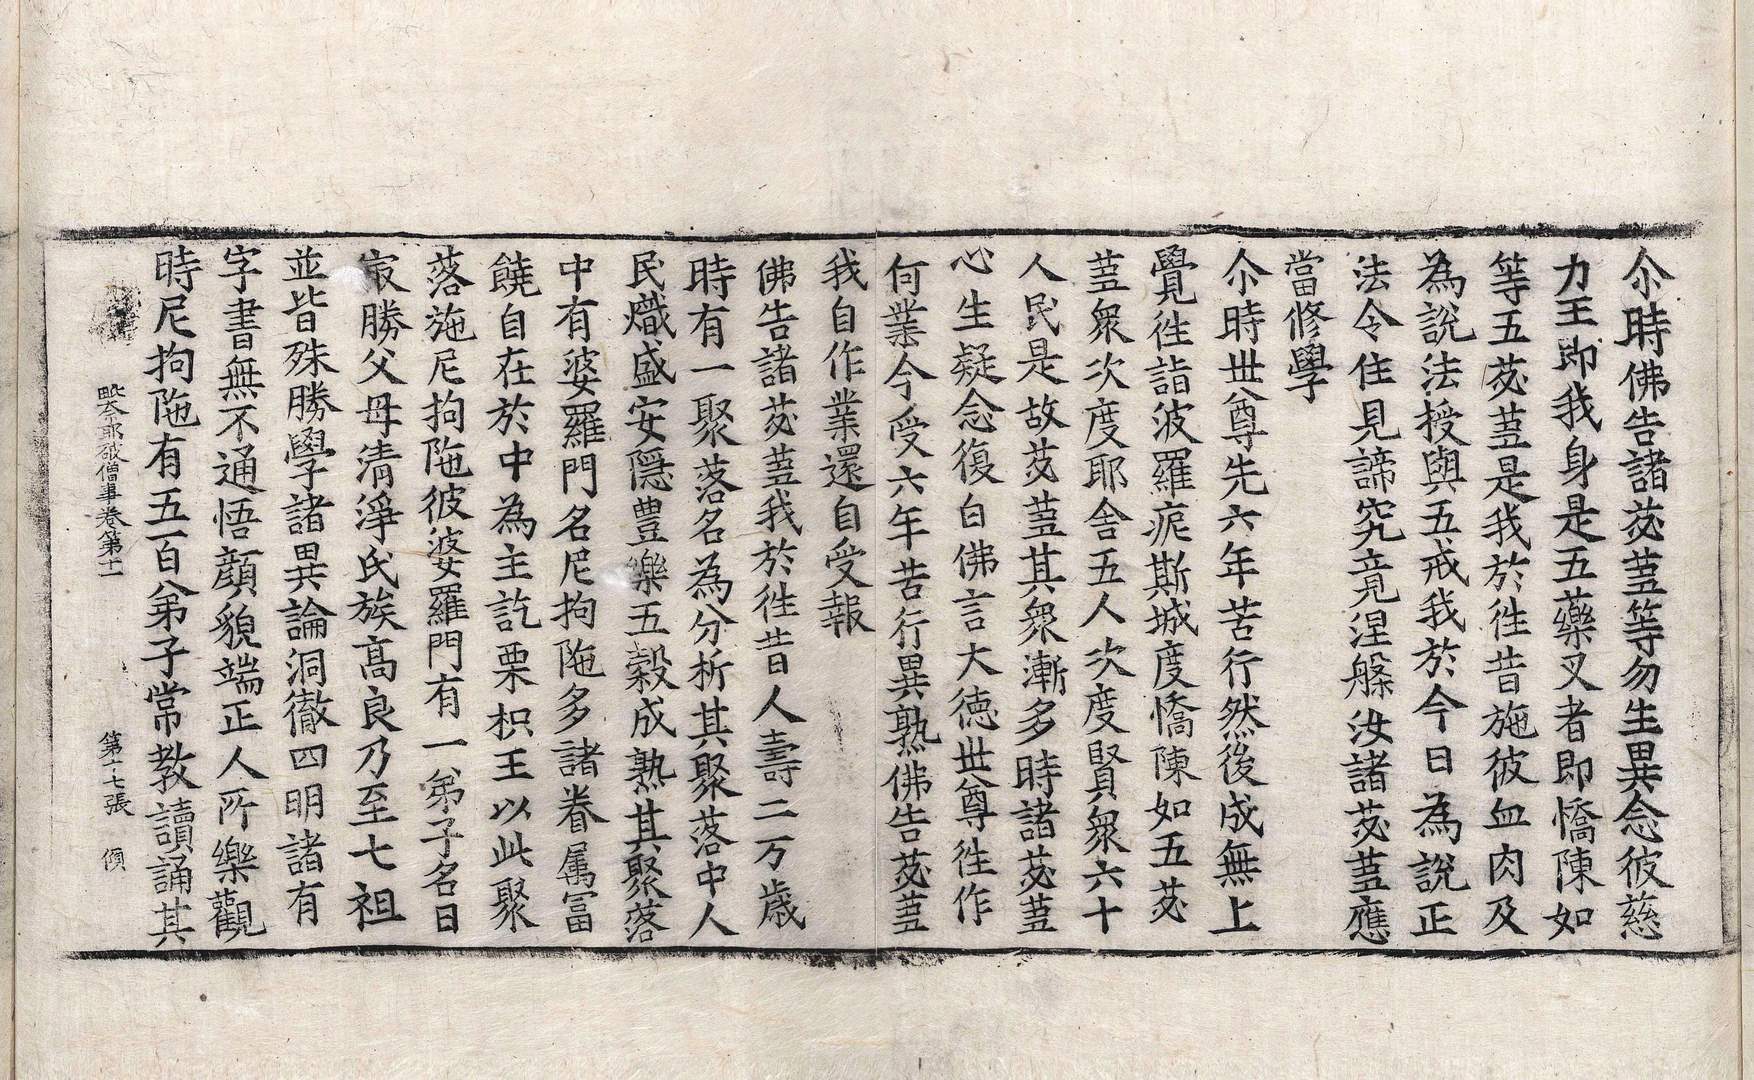 尒時佛告諸苾蒭等勿生異念彼慈
力王即我身是五藥叉者即憍陳如
等五苾蒭是我於徃昔施彼血肉及
為說法授與五戒我於今日為說正
法令住見諦究竟涅槃汝諸苾蒭應
當修學
尒時世尊先六年苦行然後成無上
覺徃詣波羅痆斯城度憍陳如五苾
蒭衆次度耶舍五人次度賢衆六十
人民是故苾蒭其衆漸多時諸苾蒭
心生疑念復白佛言大德世尊徃作
何業今受六年苦行異熟佛告苾蒭
我自作業還自受報
佛告諸苾蒭我於徃昔人壽二万歳
時有一聚落名為分析其聚落中人
民熾盛安隱豊樂五穀成熟其聚落
中有婆羅門名尼拘陁多諸眷属冨
饒自在於中為主訖栗枳王以此聚
落施尼拘陁彼婆羅門有一弟子名曰
㝡勝父母清淨氏族髙良乃至七祖
並皆殊勝學諸異論洞徹四明諸有
字書無不通悟顔貌端正人所樂觀
時尼拘陁有五百弟子常教讀誦其
毗奈耶破僧事卷第十一　第十七張　傾